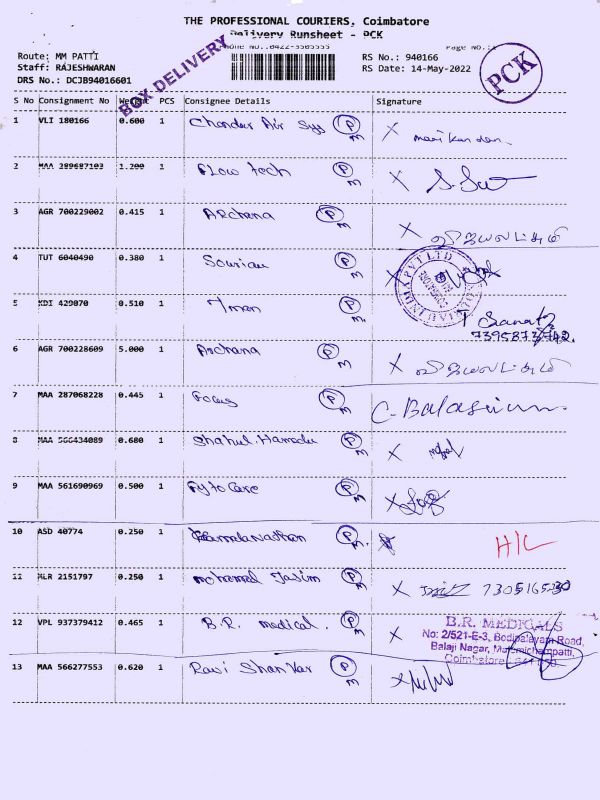 THE PROFESSIONAL COURIERS, Coimbatore
Delivery Runsheet - PCK
Phone No.:0422-3505555 Page No.:1
Route: MM PATTI
Staff: RAJESHWARAN
DRS No.: DCJB94016601
BOX DELIVERY
RS No.: 940166
RS Date: 14-May-2022
PCK
S No Consignment No Weight PCS Consignee Details Signature
1 VLI 180166 0.600 1 Chandur Air Sys P M X manikandan.
2 MAA 289687103 1.200 1 FLOW tech P M X
3 AGR 700229002 0.415 1 Archana P M X விஜயலட்சுமி
4 TUT 6040490 0.380 1 P M X
5 KDI 429070 0.510 1 P M
6 AGR 700228609 5.000 1 Archana P M X விஜயலட்சுமி
7 MAA 287068228 0.445 1 Focus P M
8 MAA 566434089 0.680 1 Shahul. P M X
9 MAA 561690969 0.500 1 Fyto Care P M X
10 ASD 40774 0.250 1 P M. H/C
11 MLR 2151797 0.250 1 mohamed Jasim P M X
12 VPL 937379412 0.465 1 B.R. medical. P M X
B.R. MEDICALS
No: 2/521-E-3, Bodipalayam Road,
Balaji Nagar,
Coimbatore
13 MAA 566277553 0.620 1 Ravi Shankar P M X